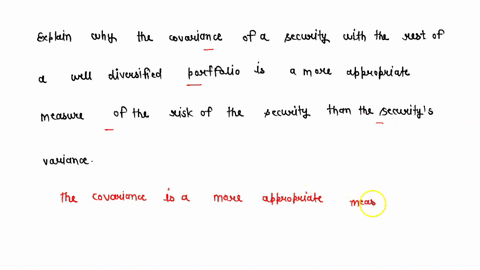 Explain why the covariance of a security with the rest of
a well diversified portfolio is a more appropriate
measure of the risk of the security than the security's
variance.
The covariance is a more appropriate meas